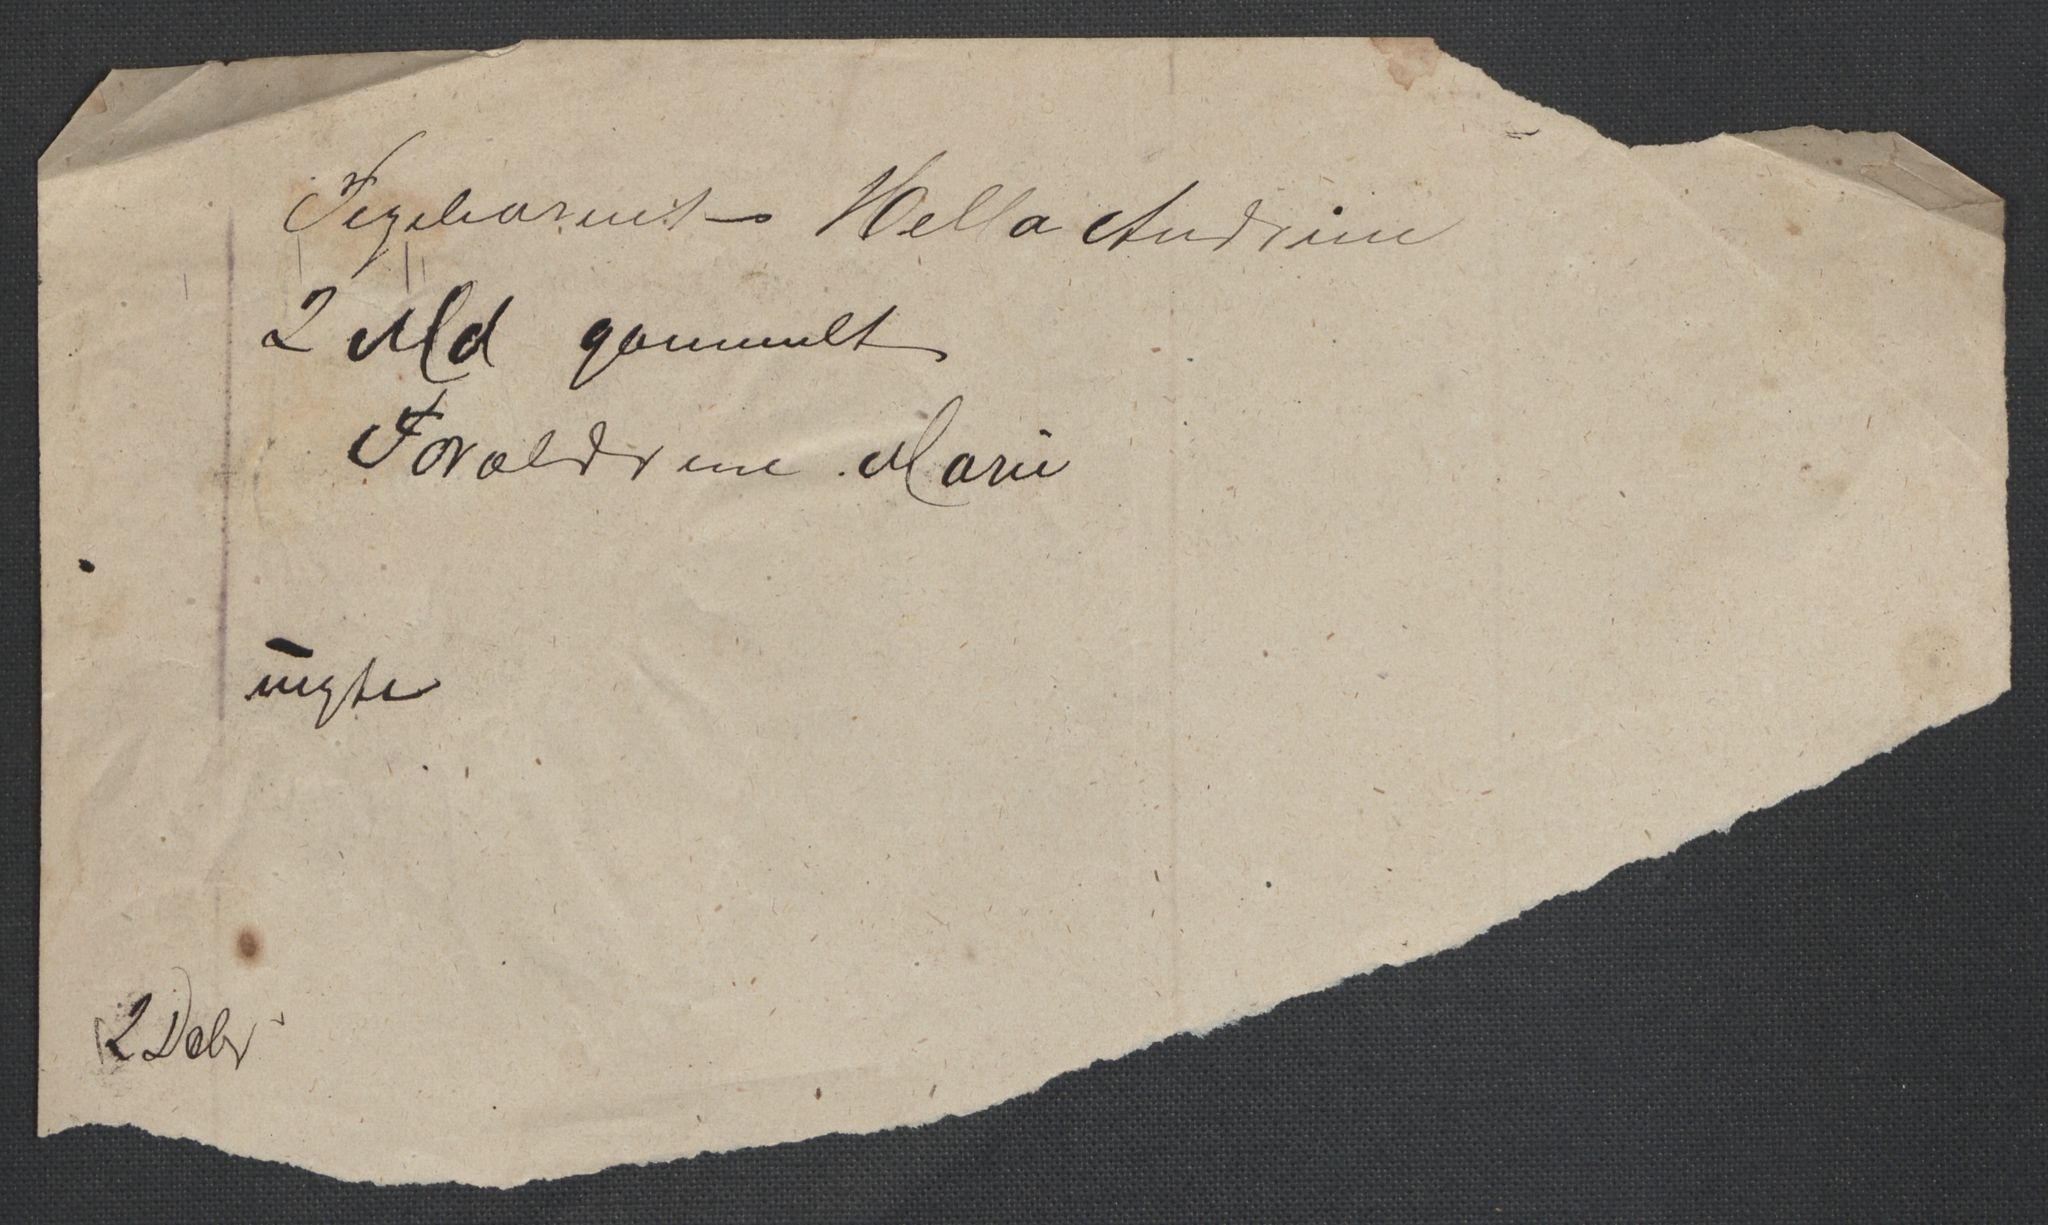 Pigebarnet Hella Andrine
2 Md gammelt
Forældrene Marie
ungte
2 Debr